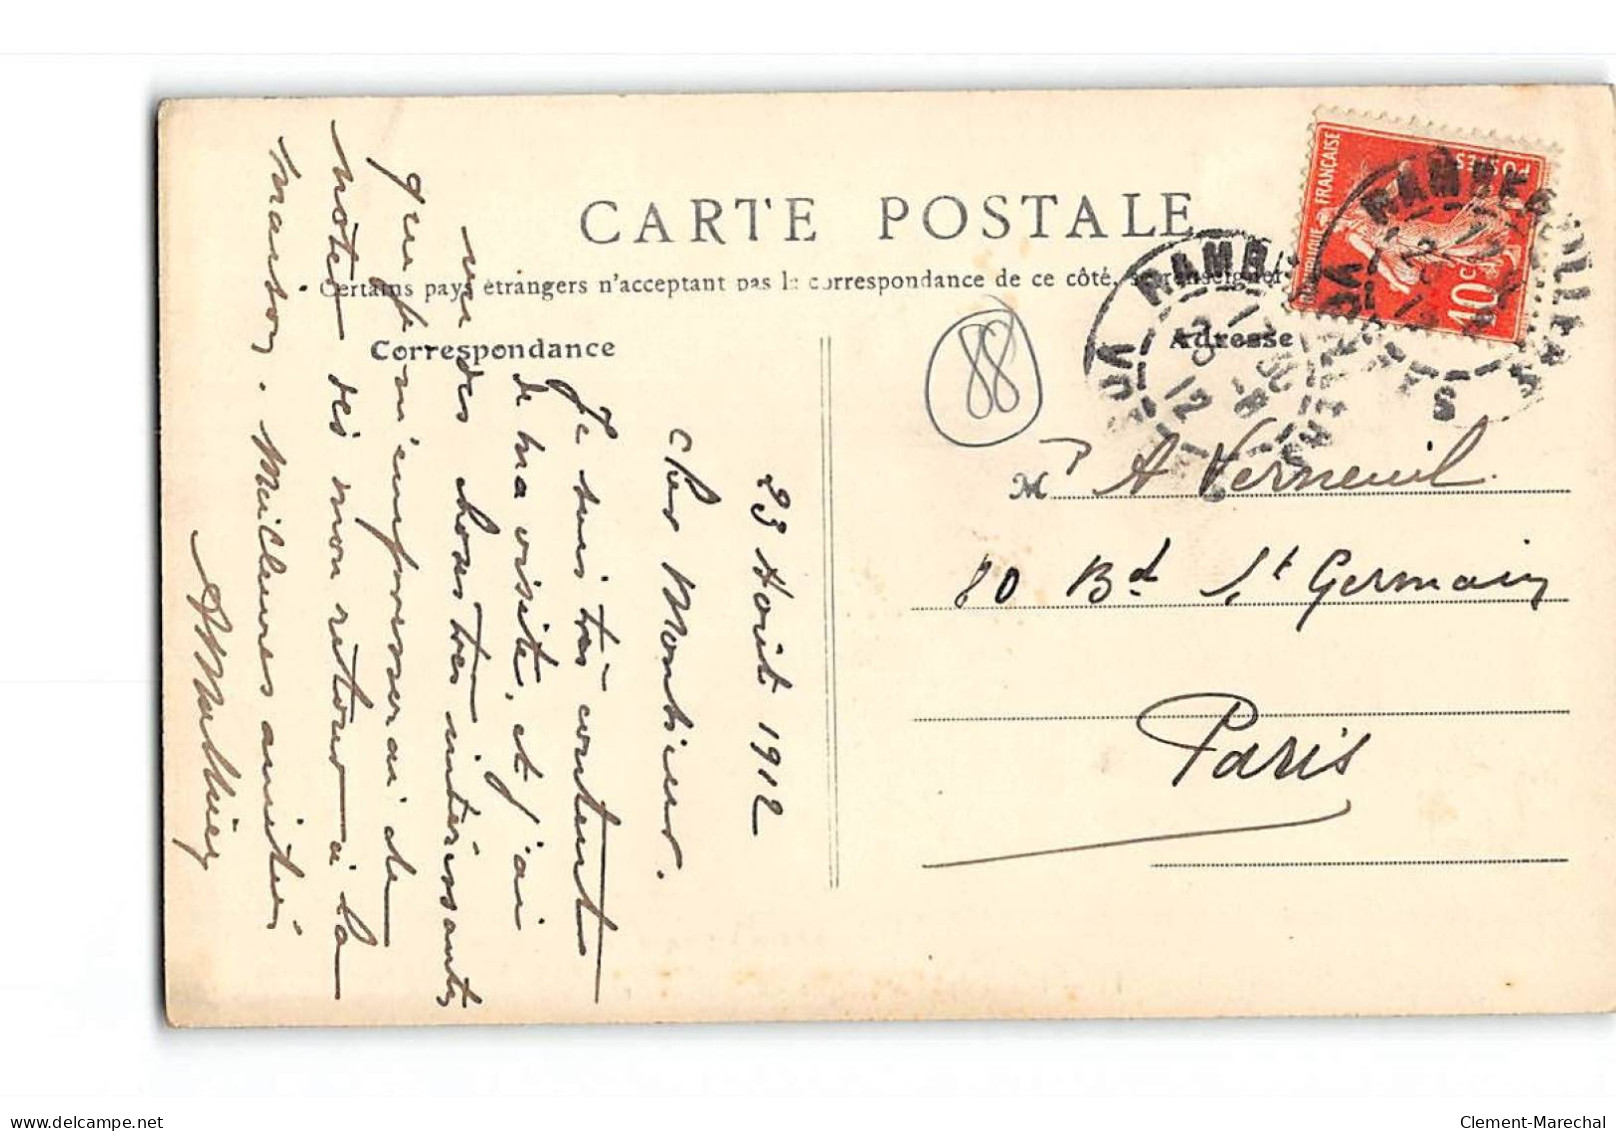 CARTE POSTALE
Certains pays étrangers n'acceptent pas la correspondance de ce côté, se renseigner
Correspondance
Adresse
RÉPUBLIQUE FRANÇAISE
POSTES
10c
RAMBOUILLET
88
23 Août 1912
Cher Monsieur.
Je suis très contente
de ma visite, et j'ai
vu des choses très intéressantes
que je m'empresserai de
noter dès mon retour à la
maison. Meilleures amitiés
Mathieu
M A Verneuil.
80 Bd St Germain
Paris
delcampe.net
Clement-Marechal